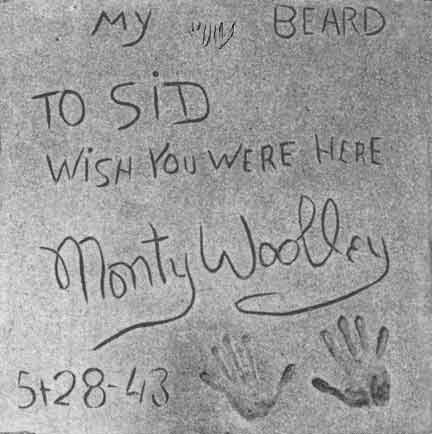 My BEARD
TO SiD
WiSH YOU WERE HERE
Monty Woolley
5-28-43